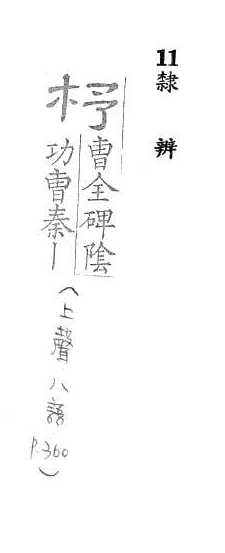 11隸辨
杼曹全碑陰
功曹秦丨
(上聲八語
P.360)